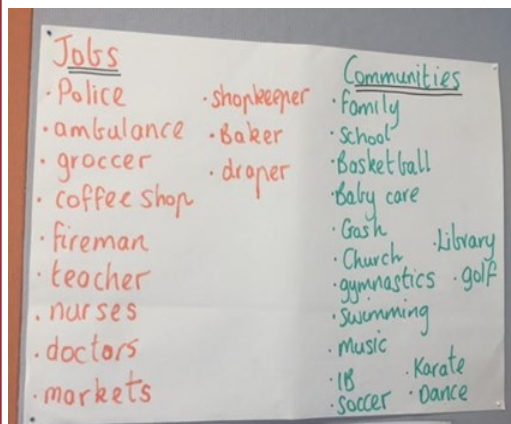 Jobs
· Police
· ambulance
· groccer
· coffee shop
· fireman
· teacher
· nurses
· doctors
· markets
· shopkeeper
· Baker
· draper
Communities
· family
· School
· Basketball
· Baby care
· Gash
· Church
· gymnastics
· Swimming
· music
· IB
· Soccer
· Library
· golf
· Karate
· Dance